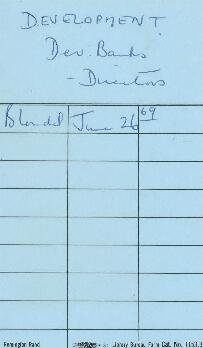 DEVELOPMENT
Dev. Banks
- Directors
Blondel June 26 69
Remington Rand Library Bureau Form Cat. No. 1153.3